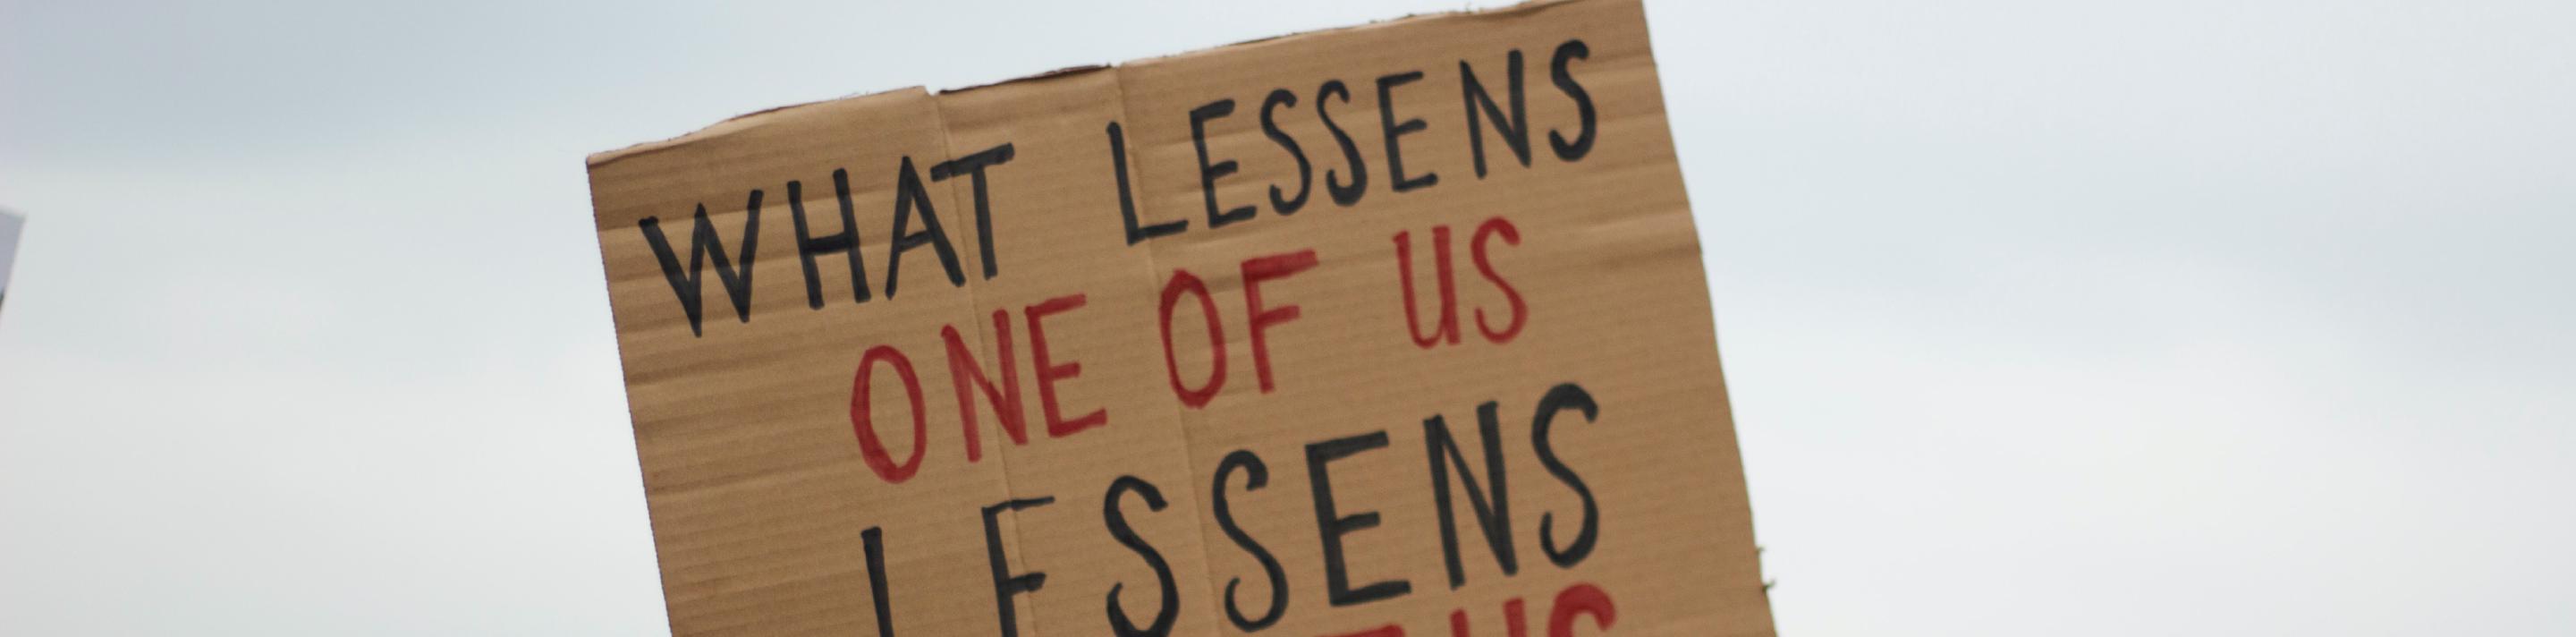 WHAT LESSENS
ONE OF US
LESSENS
US